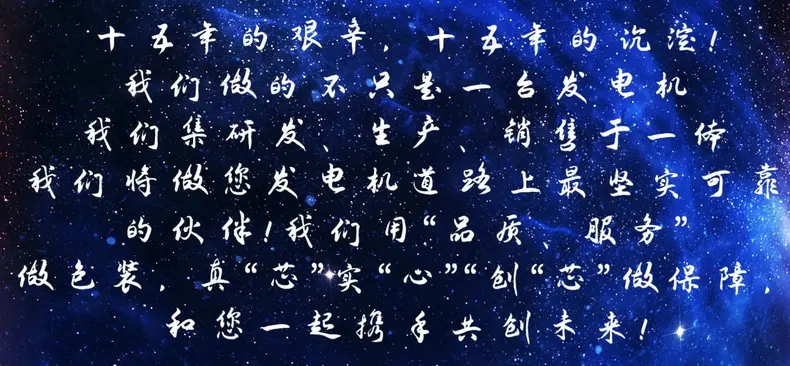 十五年的艰辛，十五年的沉淀！
我们做的不只是一台发电机
我们集研发、生产、销售于一体
我们将做您发电机道路上最坚实可靠
的伙伴！我们用“品质、服务”
做包装，真“芯”实“心”“创“芯”做保障，
和您一起携手共创未来！